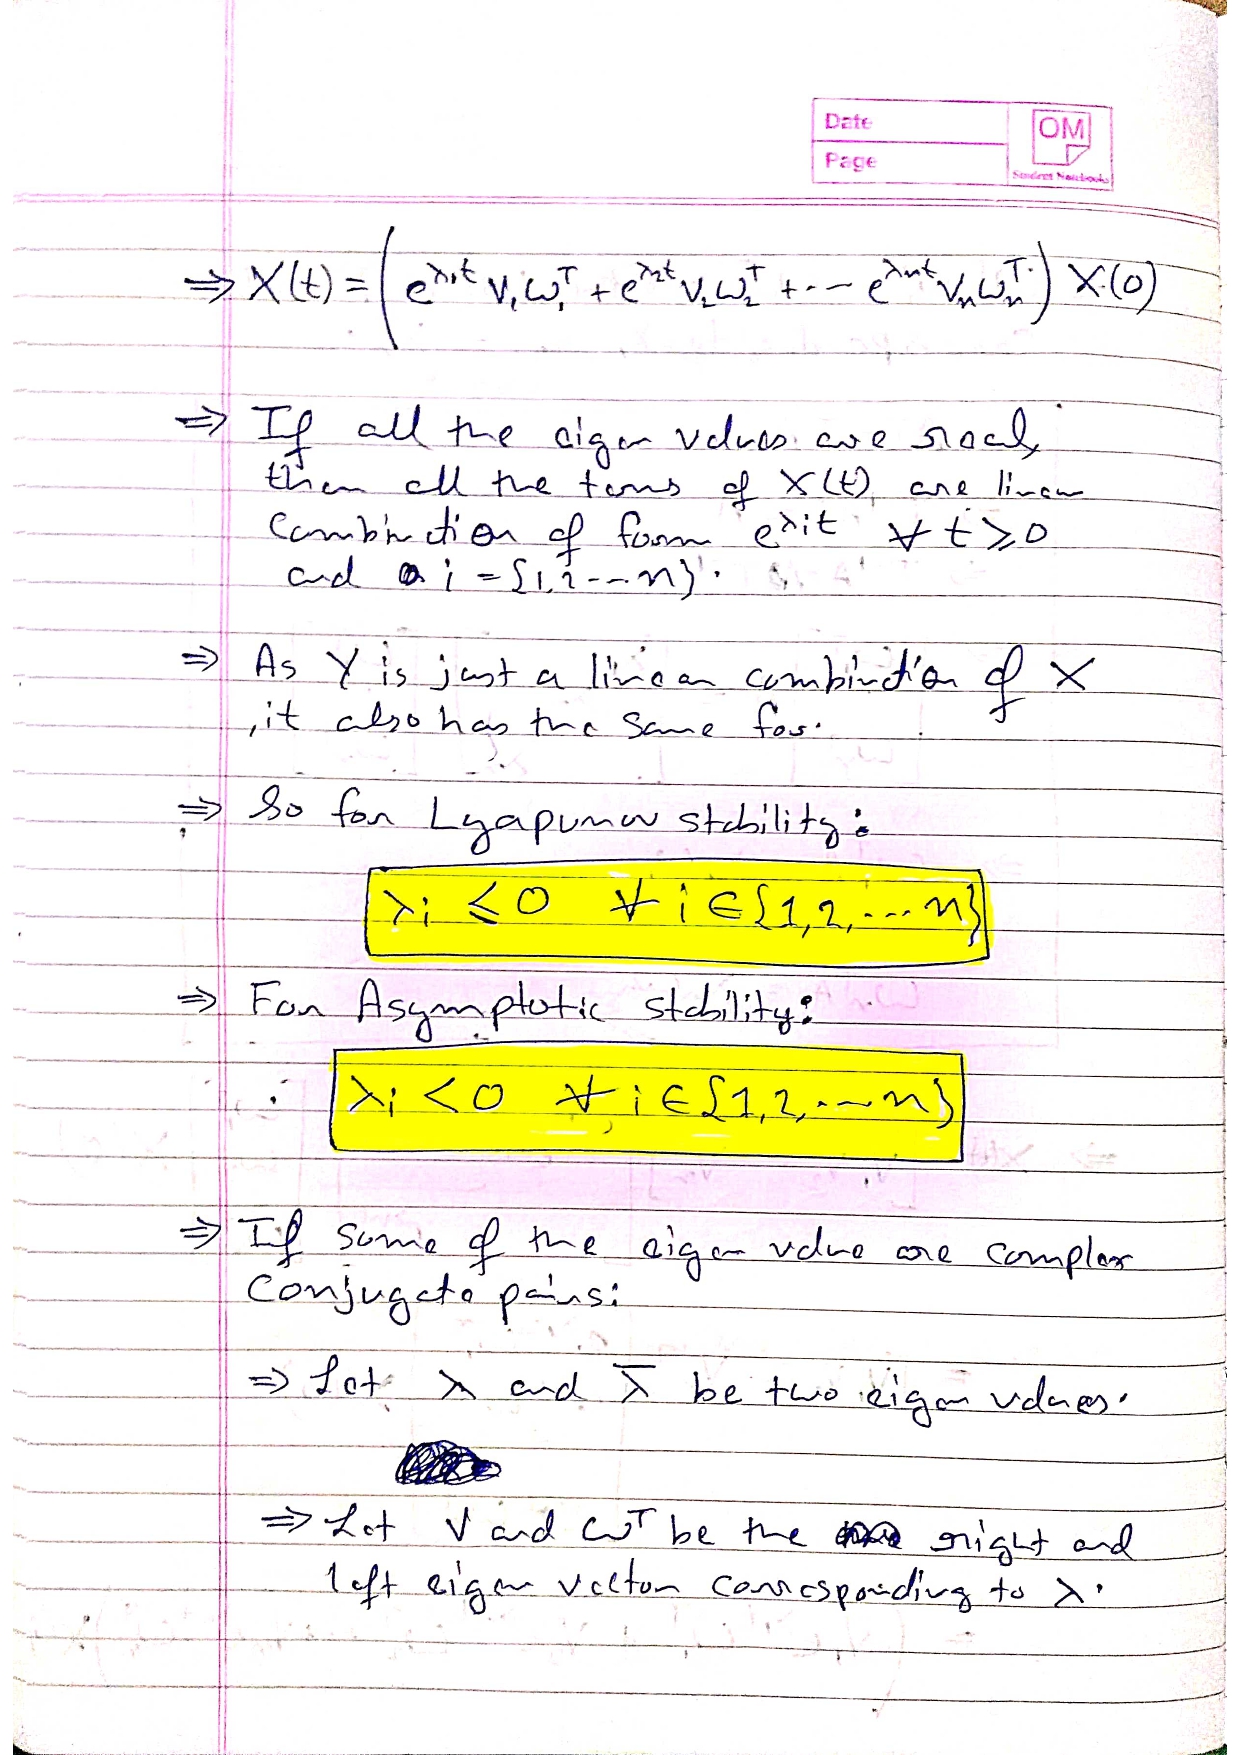 Date
OM
Page
Student Notebooks
⇒ X(t) = (e^{λ₁t} V₁ω₁ᵀ + e^{λ₂t} V₂ω₂ᵀ + ... e^{λₙt} Vₙωₙᵀ) X(0)
⇒ If all the eigen values are real,
then all the terms of X(t) are linear
Combination of form e^{λit} ∀ t ≥ 0
and i = {1, 2 --- n}.
⇒ As Y is just a linear combination of X
, it also has the same for.
⇒ So for Lyapunov stability:
λi ≤ 0 ∀ i ∈ {1, 2, ... n}
⇒ For Asymptotic stability:
λi < 0 ∀ i ∈ {1, 2, ... n}
⇒ If some of the eigen value are complex
Conjugate pairs:
⇒ Let λ and λ̅ be two eigen values.
⇒ Let V and ωᵀ be the right and
left eigen vector corresponding to λ.